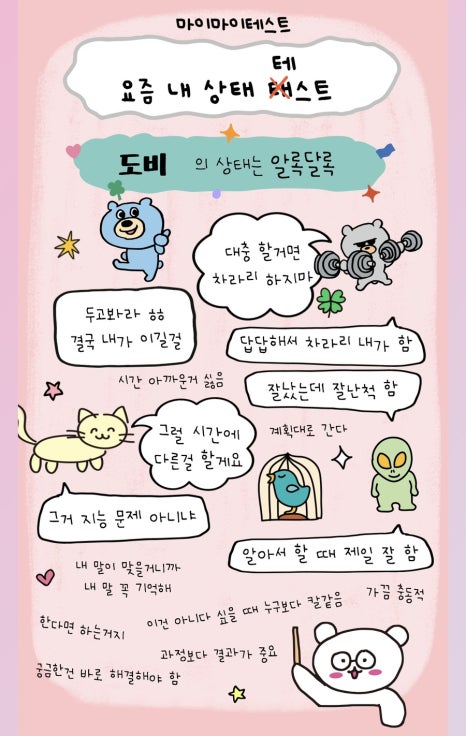 마이마이테스트
테
요즘 내 상태 태스트
도비 의 상태는 알록달록
대충 할거면
차라리 하지마
두고봐라 ㅎㅎ
결국 내가 이길걸
답답해서 차라리 내가 함
시간 아까운거 싫음
잘났는데 잘난척 함
그럴 시간에
다른걸 할게요
계획대로 간다
그거 지능 문제 아니냐
알아서 할 때 제일 잘 함
내 말이 맞을거니까
내 말 꼭 기억해
가끔 충동적
이건 아니다 싶을 때 누구보다 칼같음
한다면 하는거지
과정보다 결과가 중요
궁금한건 바로 해결해야 함